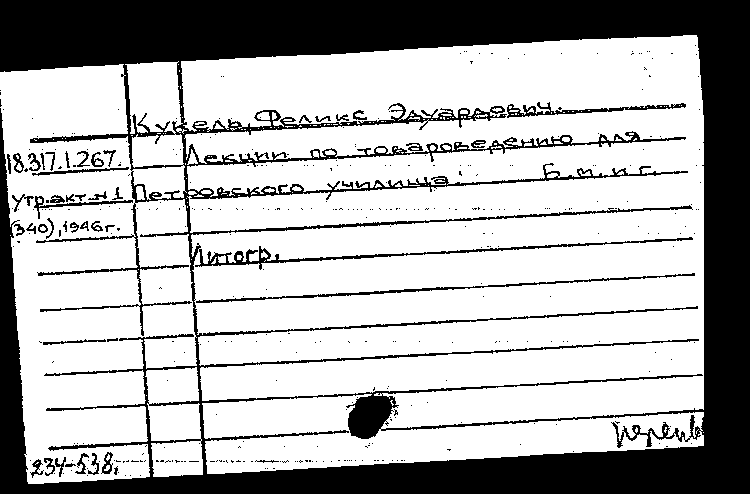 Кукель, Феликс Эдуардович.
18.317.1.267. Лекции по товароведению для
утр.акт.н1 Петровского училища. Б.м. и г.
(340), 1946г.
Литогр.
234-538.